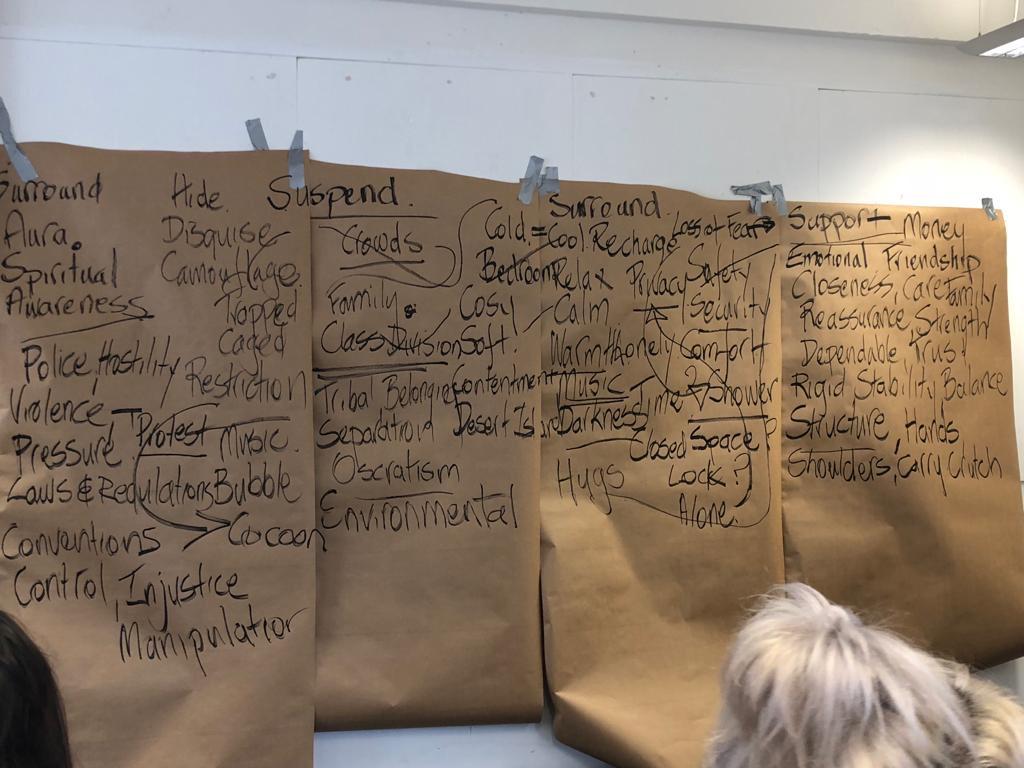 Surround
Aura.
Spiritual
Awareness
Police, Hostility
Violence
Pressure, Protest
Laws & Regulations
Conventions
Control, Injustice
Manipulation
Hide.
Disguise
Camouflage.
Trapped
Caged
Restriction
Music.
Bubble
Cocoon
Suspend.
Crowds
Family.
Class Division
Tribal Belonging
Oscratism
Environmental
Cold. =
Bedroom
Cosy
Soft.
Contentment
Surround
Cool. Recharge
Relax
Calm
Warmth
Music
Darkness
Hugs
Loss of Fear
Privacy Safety
Security
Lonely Comfort
Time ? Shower
Closed Space?
Lock?
Alone.
Support Money
Emotional Friendship
Closeness, Care Family
Reassurance, Strength
Dependable, Trust
Rigid Stability Balance
Structure, Hands
Shoulders, Carry Crutch